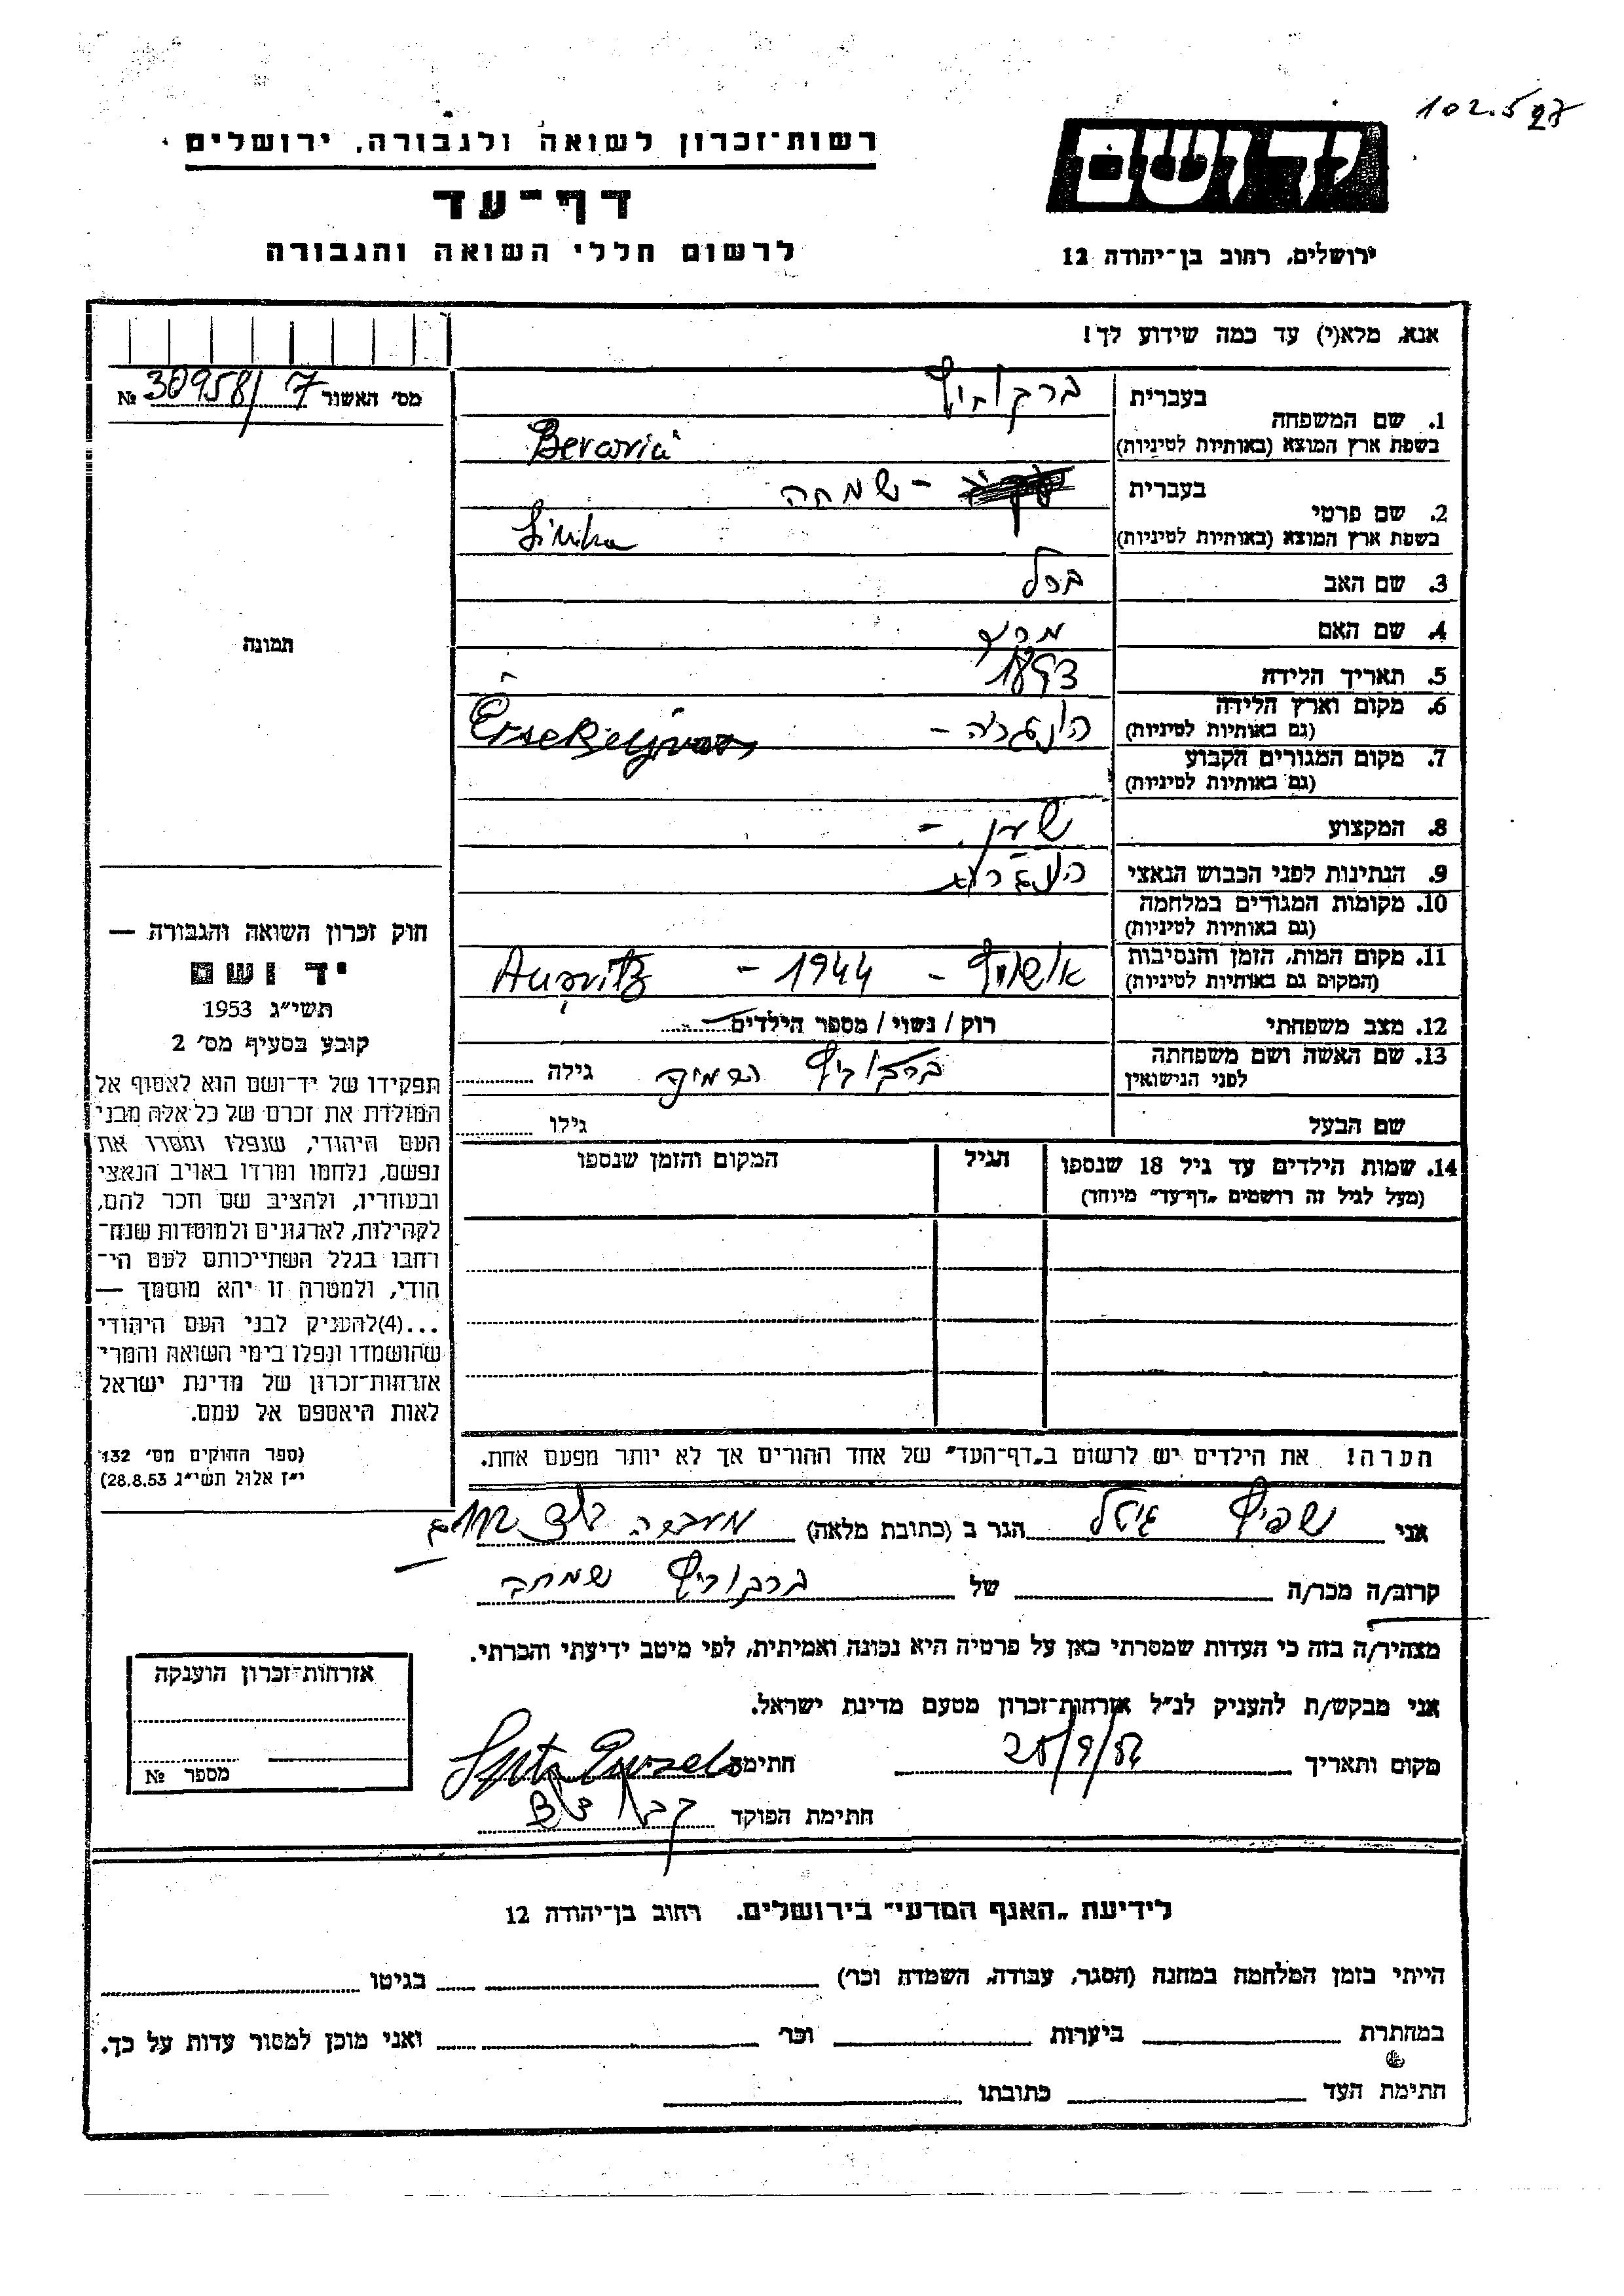 102.597
יד ושם
ירושלים, רחוב בן־יהודה 12
רשות־זכרון לשואה ולגבורה, ירושלים
דף־עד
לרשום חללי השואה והגבורה
אנא, מלא(י) עד כמה שידוע לך!
מס׳ האשור 30958/7 №
תמונה
חוק זכרון השואה והגבורה —
יד ושם
תשי״ג 1953
קובע בסעיף מס׳ 2
תפקידו של יד־ושם הוא לאסוף אל
המולדת את זכרם של כל אלה מבני
העם היהודי, שנפלו ומסרו את
נפשם, נלחמו ומרדו באויב הנאצי
ובעוזריו, ולהציב שם וזכר להם,
לקהילות, לארגונים ולמוסדות שנח־
רחבו בגלל השתייכותם לעם הי־
הודי, ולמטרה זו יהא מוסמך —
...(4)להעניק לבני העם היהודי
שהושמדו ונפלו בימי השואה והמרי
אזרחות־זכרון של מדינת ישראל
לאות היאספם אל עמם.
(ספר החוקים מס׳ 132
י״ז אלול תשי״ג 28.8.53)
1. שם המשפחה
בעברית ברקוביץ
בשפת ארץ המוצא (באותיות לטיניות)
2. שם פרטי
בעברית - שמחה
בשפת ארץ המוצא (באותיות לטיניות)
3. שם האב
4. שם האם
5. תאריך הלידה 1893
6. מקום וארץ הלידה הונגריה -
(גם באותיות לטיניות) Érsekújvár
7. מקום המגורים הקבוע
(גם באותיות לטיניות)
8. המקצוע
9. הנתינות לפני הכבוש הנאצי
10. מקומות המגורים במלחמה
(גם באותיות לטיניות)
11. מקום המות, הזמן והנסיבות - 1944 -
(המקום גם באותיות לטיניות) Auswitz
12. מצב משפחתי רוק / נשוי / מספר הילדים
13. שם האשה ושם משפחתה ברקוביץ גילה
לפני הנישואין
שם הבעל גילו
14. שמות הילדים עד גיל 18 שנספו הגיל המקום והזמן שנספו
(מעל לגיל זה רושמים „דף־עד״ מיוחד)
הערה! את הילדים יש לרשום ב„דף־העד״ של אחד ההורים אך לא יותר מפעם אחת.
אני שפיץ גיזל הגר ב (כתובת מלאה)
קרוב/ה מכר/ה של ברקוביץ שמחה
מצהיר/ה בזה כי העדות שמסרתי כאן על פרטיה היא נכונה ואמיתית, לפי מיטב ידיעתי והכרתי.
אני מבקש/ת להעניק לנ״ל אזרחות־זכרון מטעם מדינת ישראל.
מקום ותאריך חתימה
חתימת הפוקד
אזרחות־זכרון הוענקה
מספר №
לידיעת „האגף המדעי״ בירושלים. רחוב בן־יהודה 12
הייתי בזמן המלחמה במחנה (הסגר, עבודה, השמדה וכו׳) בגיטו
במחתרת ביערות וכו׳ ואני מוכן למסור עדות על כך.
חתימת העד כתובתו